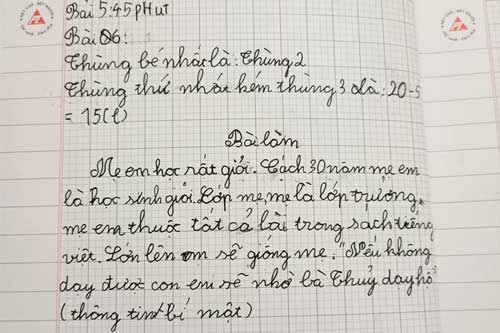 Bài 5:45 pHut
Bài 06:
Thùng bé nhất là: Thùng 2
Thùng thứ nhất kém thùng 3 là: 20-5
= 15(l)
Bài làm
Mẹ em học rất giỏi. Cách 30 năm mẹ em
là học sinh giỏi. Lớp mẹ, mẹ là lớp trưởng,
mẹ em thuộc tất cả bài trong sách tiếng
việt. Lớn lên em sẽ giống mẹ. "Nếu không
dạy được con em sẽ nhờ bà Thuỷ dạy hộ"
(thông tin bí mật)